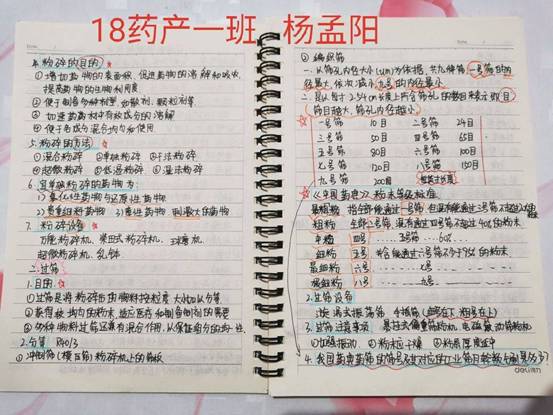 18药产一班 杨孟阳
4.粉碎的目的
①增加药物的表面积,促进药物的溶解和吸收,
提高药物的生物利用度
②便于制备多种剂型,如散剂、颗粒剂等
③加速药材中有效成分的溶解
④便于各成分混合均匀和使用
5.粉碎的方法
①混合粉碎 ②单独粉碎 ③干法粉碎
④超微粉碎 ⑤低温粉碎 ⑥湿法粉碎
6.宜单独粉碎的药物有:
1)氧化性药物与还原性药物
2)贵重细料药物 3)毒性药物 刺激大的药物
7.粉碎设备
万能粉碎机、柴田式粉碎机、球磨机
超微粉碎机、乳钵
二.过筛
1.目的
①过筛是将粉碎的物料按粒度大小加以分等
②获得较均匀的粉末,适应医疗和制备制剂的需要
③多种物料过筛还兼有混合作用,从保证组分的均一性
2.分等 P40/3
①冲制筛(模压筛)粉碎机上的筛板
②编织筛
一.以筛孔内径大小(um)为依据,共九种筛,一号筛的内
径最大,依次减小,九号的内径最小
二.是以每寸2.54cm长度上所含筛孔的数目来表示,即目
筛目越大,筛孔内径越小
一号筛 10目 二号筛 24目
三号筛 50目 四号筛 65目
五号筛 80目 六号筛 100目
七号筛 120目 八号筛 150目
九号筛 200目
《中国药典》粉末等级标准
最粗粉 指全部能通过一号筛,但混有能通过三号筛不超过20%的粉末
粗粉 全部二号筛,混有通过四号筛不超过40%的粉末
中粉 四号……五号筛…60%…
细粉 五号 含能通过六号筛不少于95%的粉末
最细粉 六号……七号……
极细粉 八号……九号…
2.过筛设备
3.过筛注意事项
①加强振动 ②粉末应干燥 ③粉层厚度适中
4.我国药典药筛的筛号及其对应的工业筛目数
deli